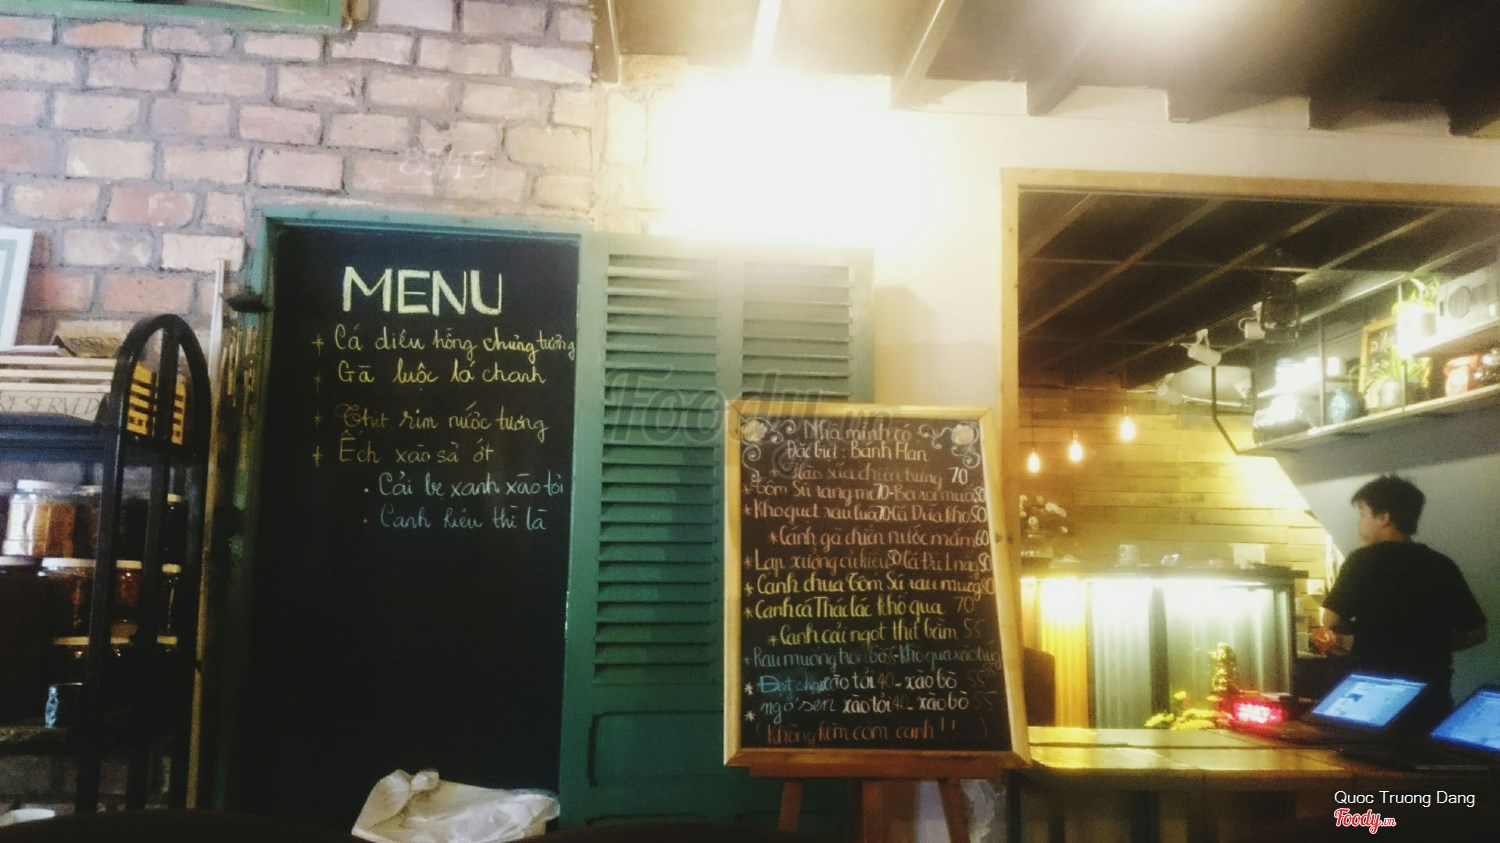 85/15
MENU
+ Cá diêu hồng chưng tương
+ Gà luộc lá chanh
+ Thịt rim nước tương
+ Ếch xào sả ớt
. Cải bẹ xanh xào tỏi
. Canh kiểu thì là
RESERVED
Nhà mình có
Đặc biệt : Bánh Flan
+ xíu chiên trứng 70
* Tôm Sú rang me 70 - 80
* Kho quẹt rau luộc 70 Cá Dứa kho 80
* Cánh gà chiên nước mắm 60
* Lạp xưởng củ kiệu 80 Cá Đù 1 nắng 80
* Canh chua Tôm Sú rau muống 80
* Canh cá Thác lác khổ qua 70
* Canh cải ngọt thịt bằm 55
* Rau muống - Khổ qua xào trứng
* Đọt xào tỏi 40 - xào bò 55
* ngó sen xào tỏi 40 - xào bò 55
( Không kèm cơm canh !! )
Foody.vn
Quoc Truong Dang
Foody.vn